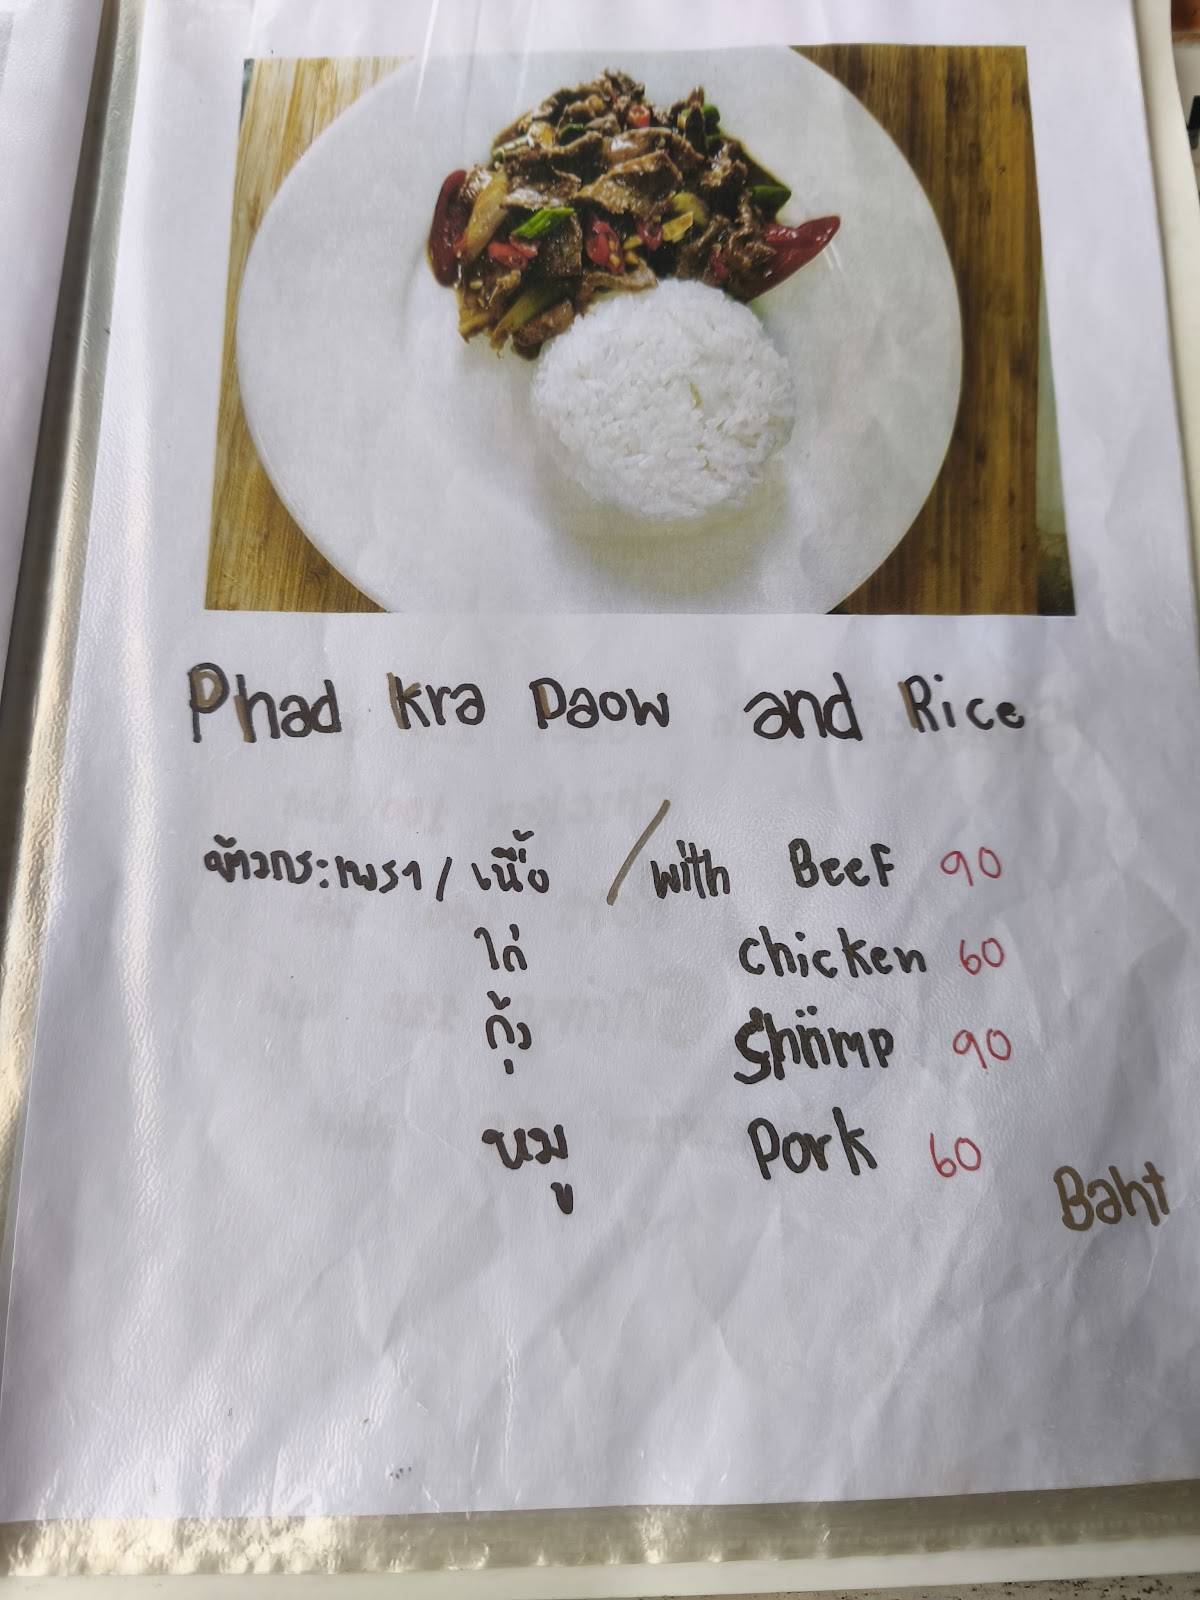 Phad Kra Paow and Rice
ข้าวกระเพรา / เนื้อ / with Beef 90
ไก่ chicken 60
กุ้ง Shrimp 90
หมู Pork 60
Baht